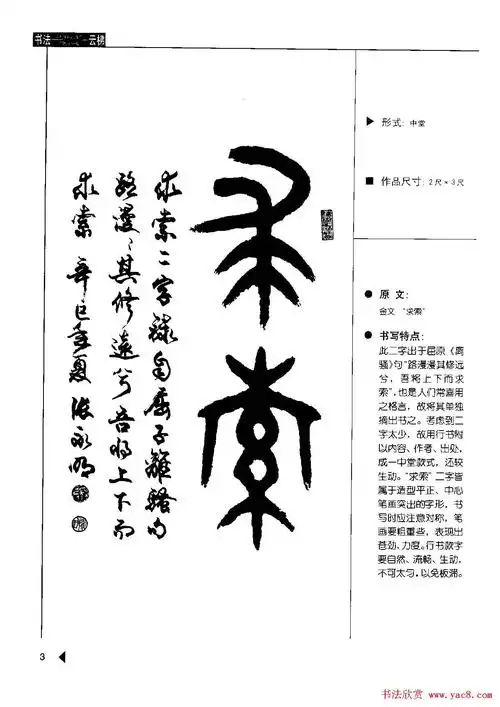 书法一 云梯
求索
求索二字録自屈子離騷句
路漫〻其修遠兮吾将上下而
求索 辛巳年夏 张永明
▶ 形式: 中堂
■ 作品尺寸: 2尺×3尺
● 原 文:
金文 “求索”
● 书写特点:
此二字出于屈原《离
骚》句“路漫漫其修远
兮，吾将上下而求
索”，也是人们常喜用
之格言，故将其单独
摘出书之。考虑到二
字太少，故用行书附
以内容、作者、出处，
成一中堂款式，还较
生动。“求索”二字皆
属于造型平正、中心
笔画突出的字形，书
写时应注意对称，笔
画要粗重些，表现出
苍劲、力度。行书款字
要自然、流畅、生动，
不可太匀，以免板滞。
3 ◀
书法欣赏 www.yac8.com